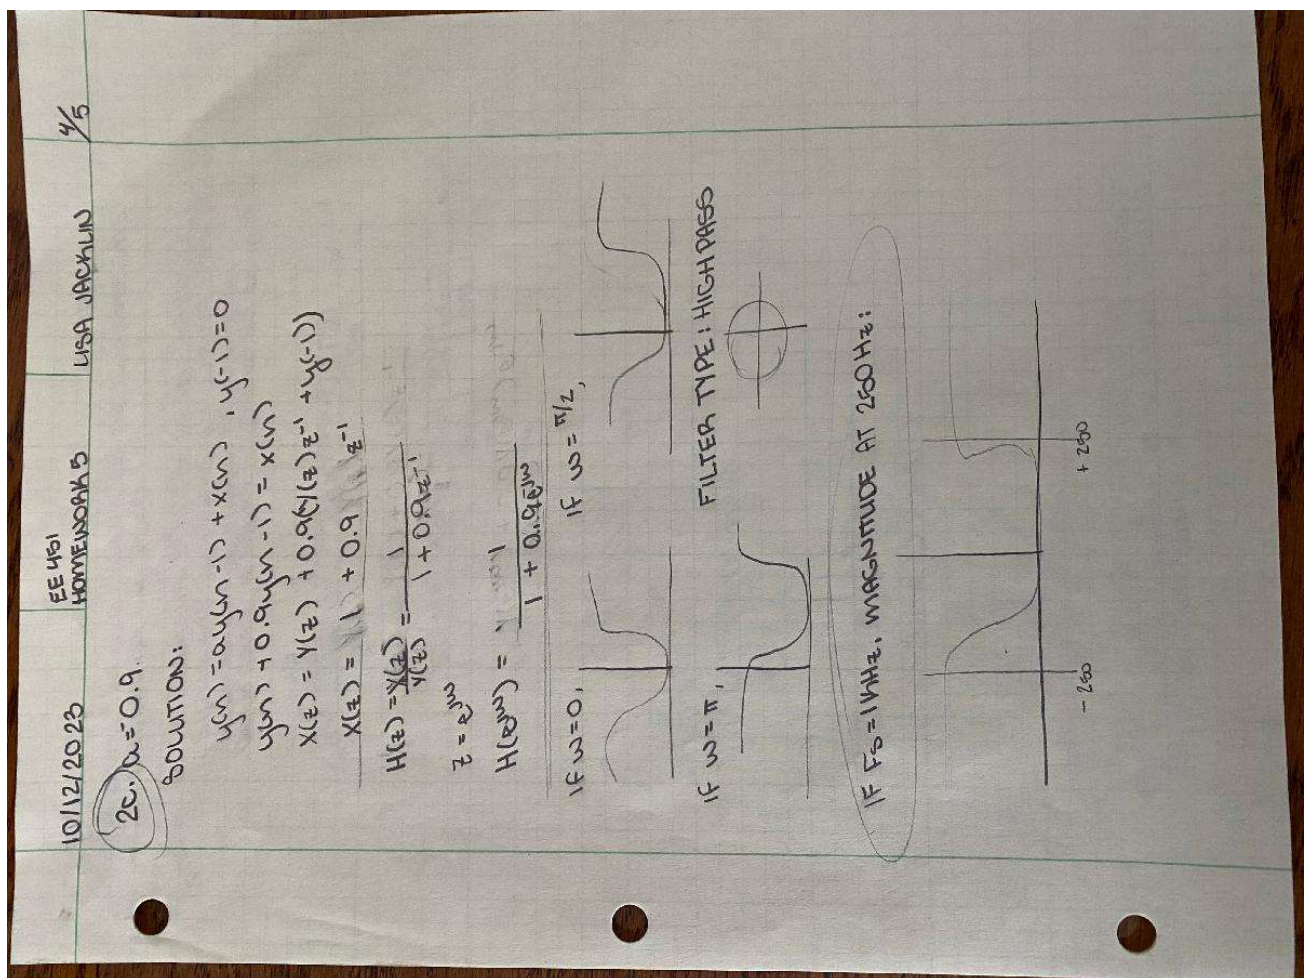 10/12/2023
EE 451
HOMEWORK 5
LISA JACKLIN
4/5
2c. a=-0.9.
SOLUTION:
y(n) = ay(n-1) + x(n) , y(-1)=0
y(n) + 0.9y(n-1) = x(n)
X(z) = Y(z) + 0.9(Y(z)z⁻¹ + y(-1))
X(z) = 1 + 0.9 z⁻¹
H(z) = X(z)/Y(z) = 1/(1 + 0.9z⁻¹)
z = e^jω
H(e^jω) = 1/(1 + 0.9e^jω)
IF ω=0,
IF ω = π/2,
IF ω = π,
FILTER TYPE: HIGHPASS
IF Fs = 1kHz, MAGNITUDE AT 250Hz:
-250
+250